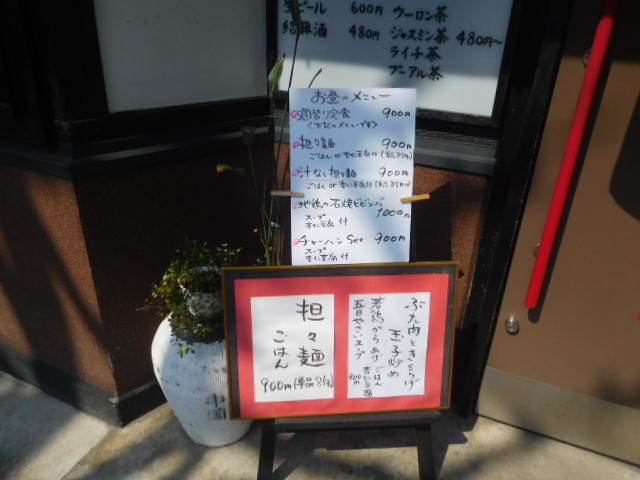 生ビール 600円
紹興酒 480円
ウーロン茶
ジャスミン茶 480円~
ライチ茶
プーアル茶
お昼のメニュー
週替り定食 900円
<下記のメニューです>
担々麺 900円
ごはん or 杏仁豆腐付
汁なし担々麺 900円
ごはん or 杏仁豆腐付
地鶏の石焼ビビンバ 1000円
スープ
杏仁豆腐 付
チャーハン Set 900円
スープ
杏仁豆腐 付
担々麺
ごはん
900円
ぶた肉ときくらげ
玉子炒め
若鶏からあげ ごはん
杏仁豆腐
五目やさいスープ 900円